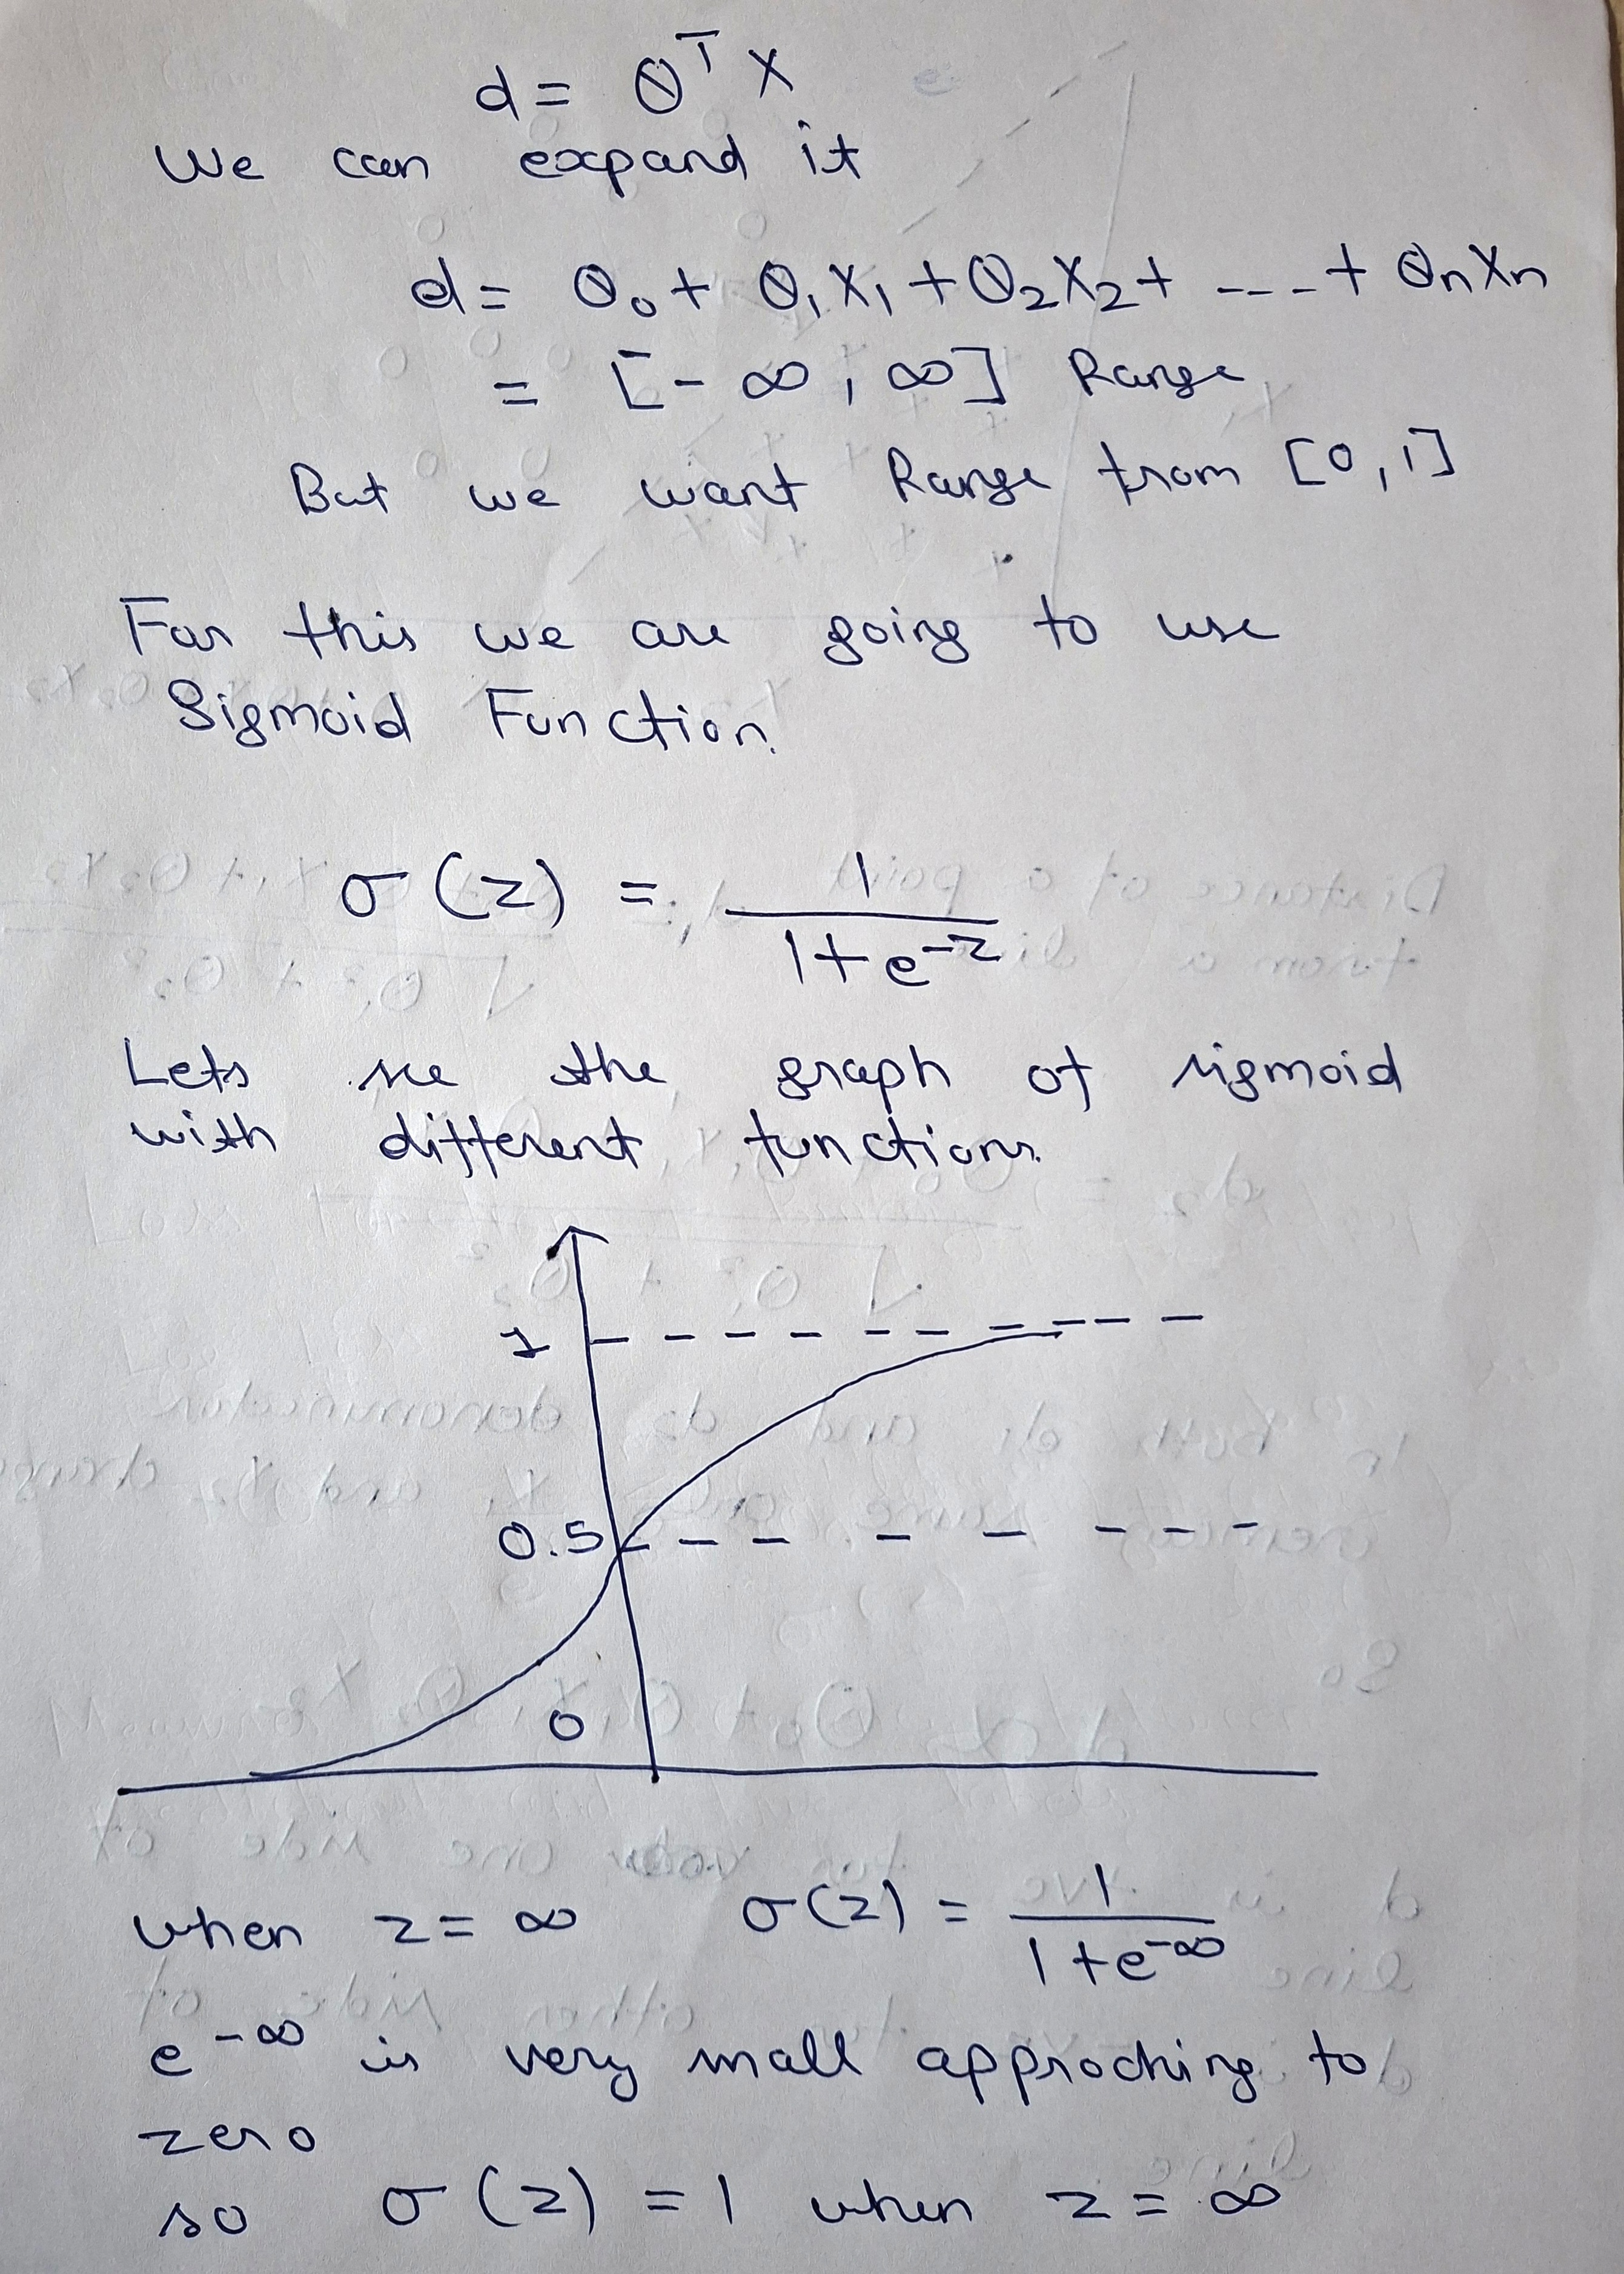 d = θᵀ X
We can expand it
d = θ₀ + θ₁X₁ + θ₂X₂ + ---- + θₙXₙ
= [-∞, ∞] Range
But we want Range from [0,1]
For this we are going to use
Sigmoid Function.
σ(z) = 1 / (1+e^-z)
Lets see the graph of sigmoid
with different functions.
1
0.5
0
when z = ∞ σ(z) = 1 / (1+e^-∞)
e^-∞ is very small approching to
zero
so σ(z) = 1 when z = ∞